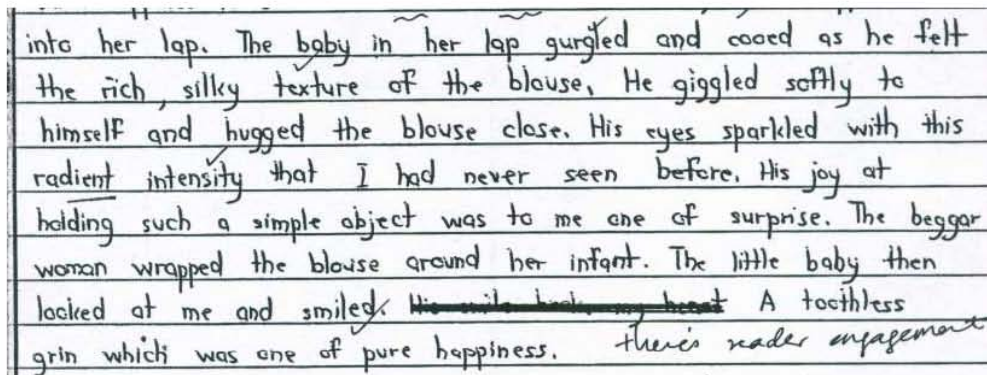 into her lap. The baby in her lap gurgled and cooed as he felt
the rich, silky texture of the blouse. He giggled softly to
himself and hugged the blouse close. His eyes sparkled with this
radient intensity that I had never seen before. His joy at
holding such a simple object was to me one of surprise. The beggar
woman wrapped the blouse around her infant. The little baby then
looked at me and smiled. A toothless
grin which was one of pure happiness. there's reader engagement